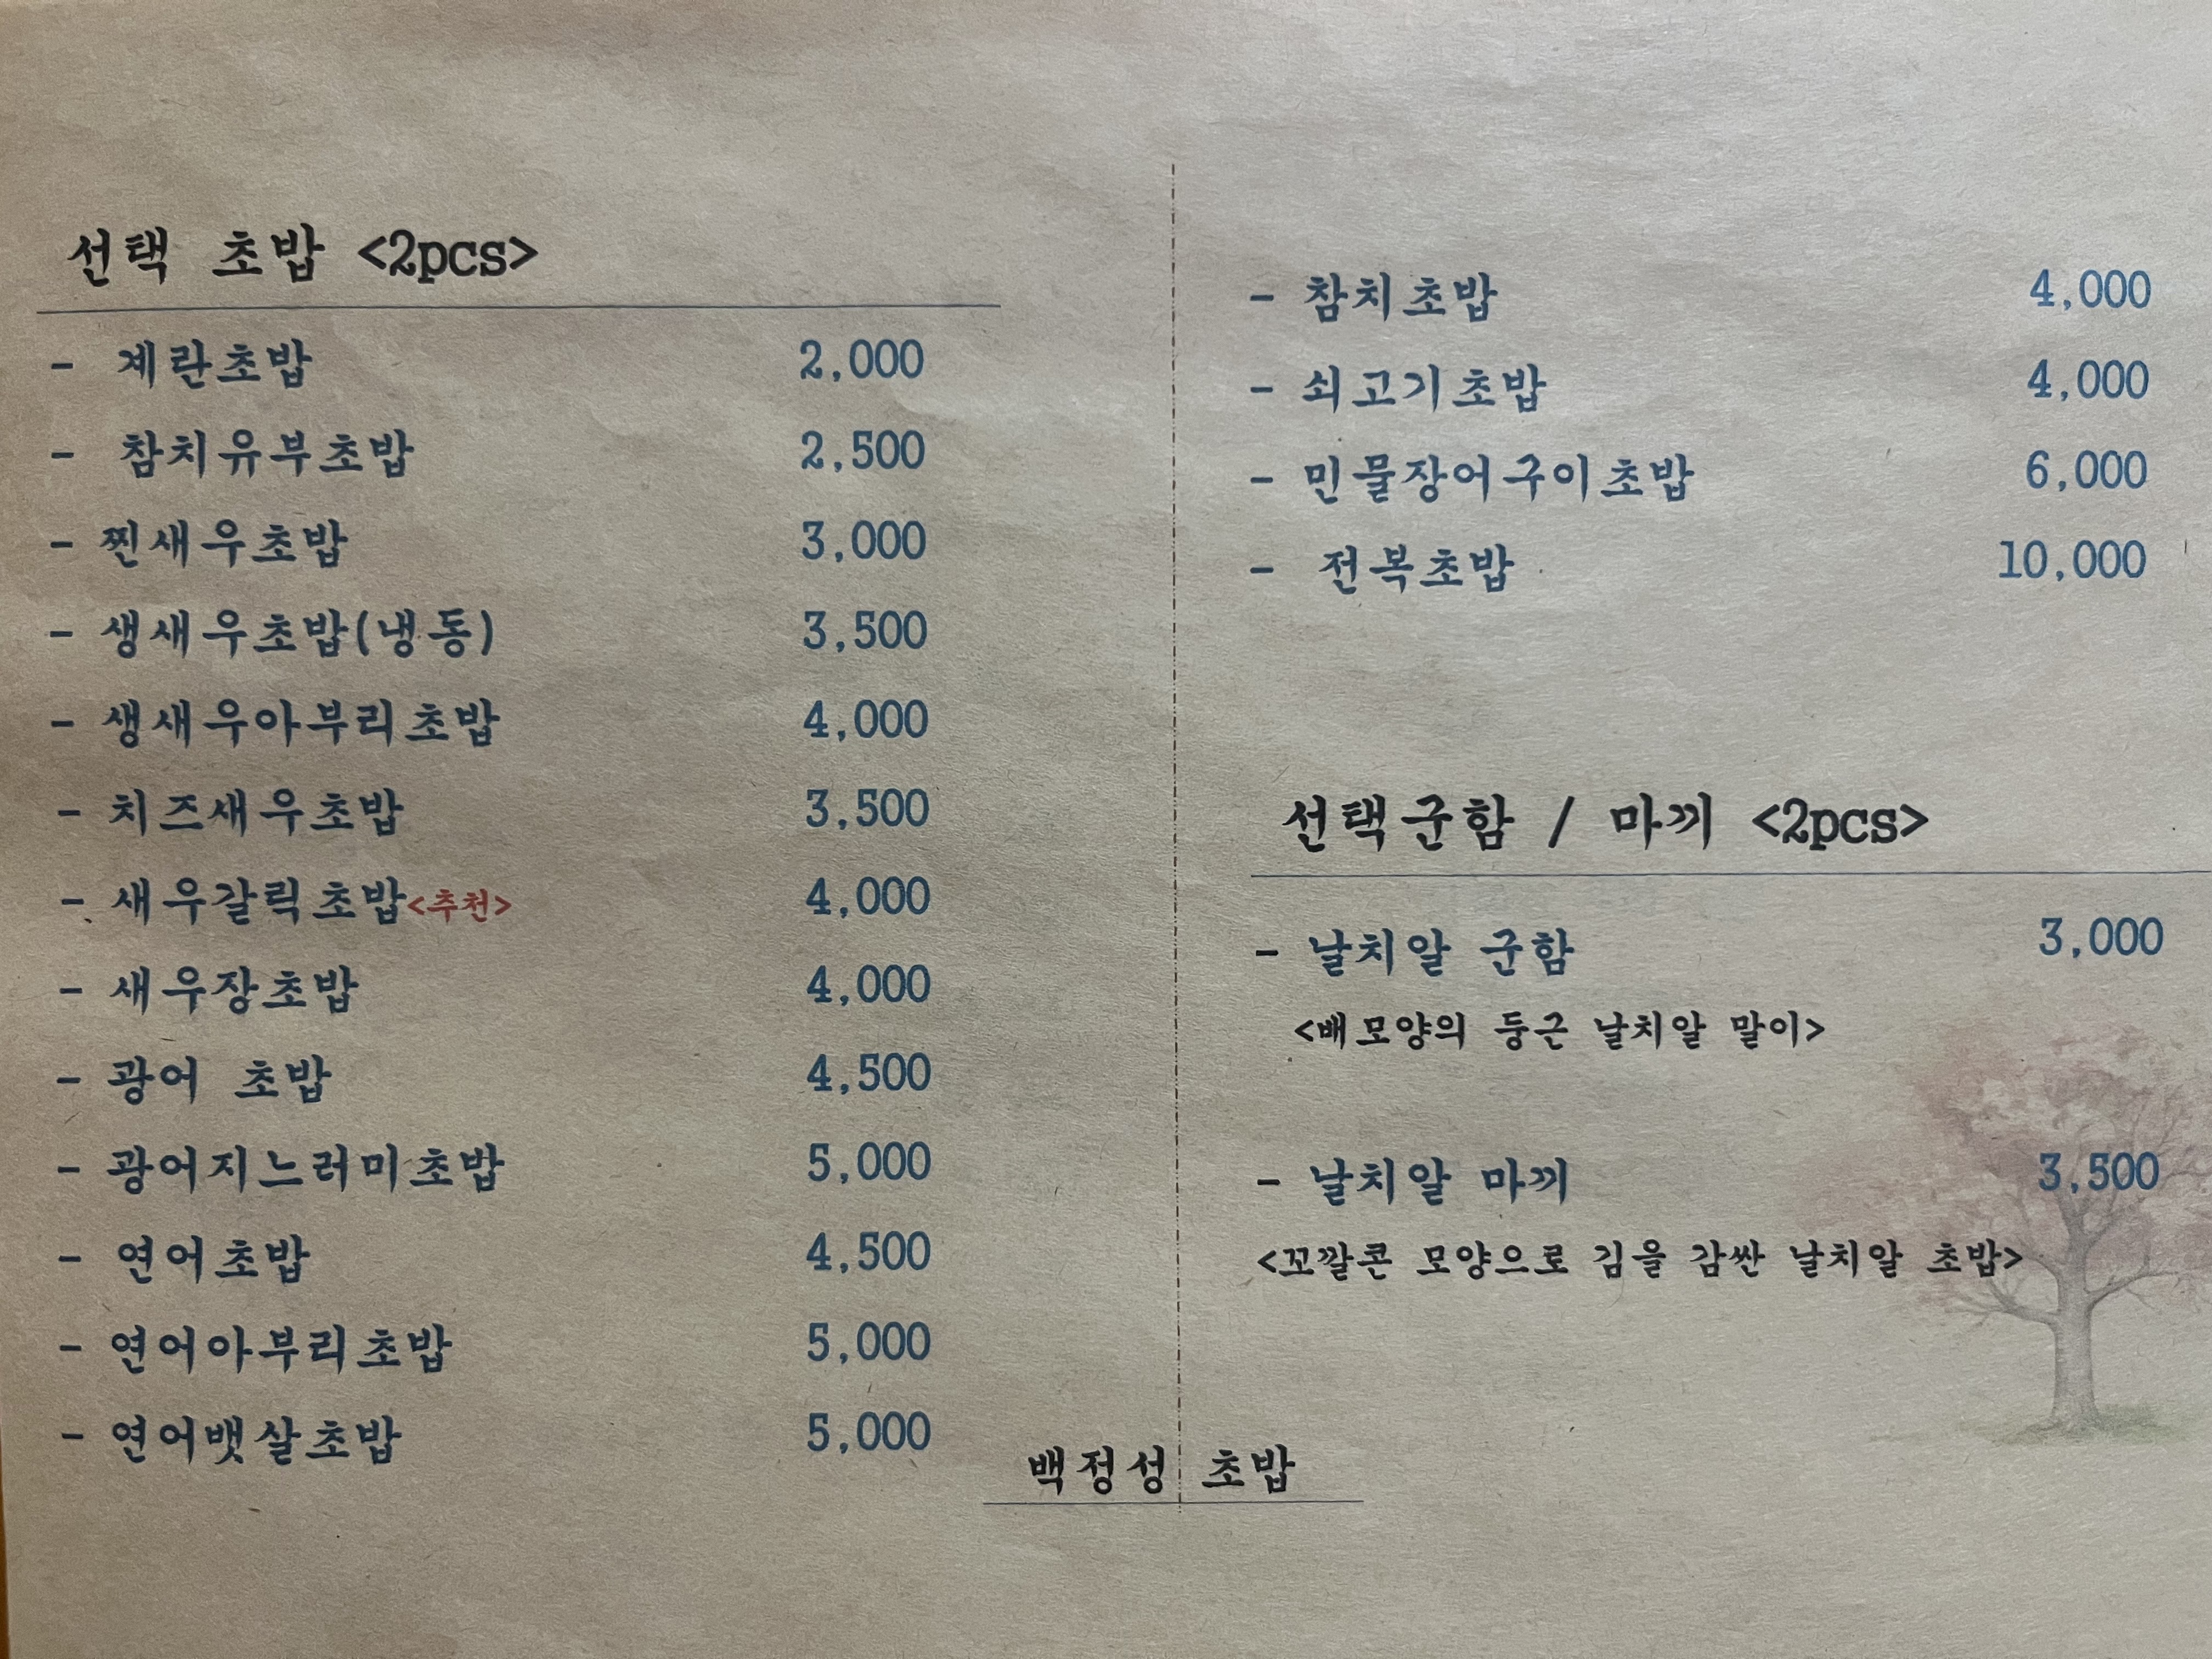 선택 초밥 <2pcs>
- 계란초밥 2,000
- 참치유부초밥 2,500
- 찐새우초밥 3,000
- 생새우초밥(냉동) 3,500
- 생새우아부리초밥 4,000
- 치즈새우초밥 3,500
- 새우갈릭초밥<추천> 4,000
- 새우장초밥 4,000
- 광어 초밥 4,500
- 광어지느러미초밥 5,000
- 연어초밥 4,500
- 연어아부리초밥 5,000
- 연어뱃살초밥 5,000
- 참치초밥 4,000
- 쇠고기초밥 4,000
- 민물장어구이초밥 6,000
- 전복초밥 10,000
선택군함 / 마끼 <2pcs>
- 날치알 군함 3,000
<배모양의 둥근 날치알 말이>
- 날치알 마끼 3,500
<꼬깔콘 모양으로 김을 감싼 날치알 초밥>
백정성 초밥